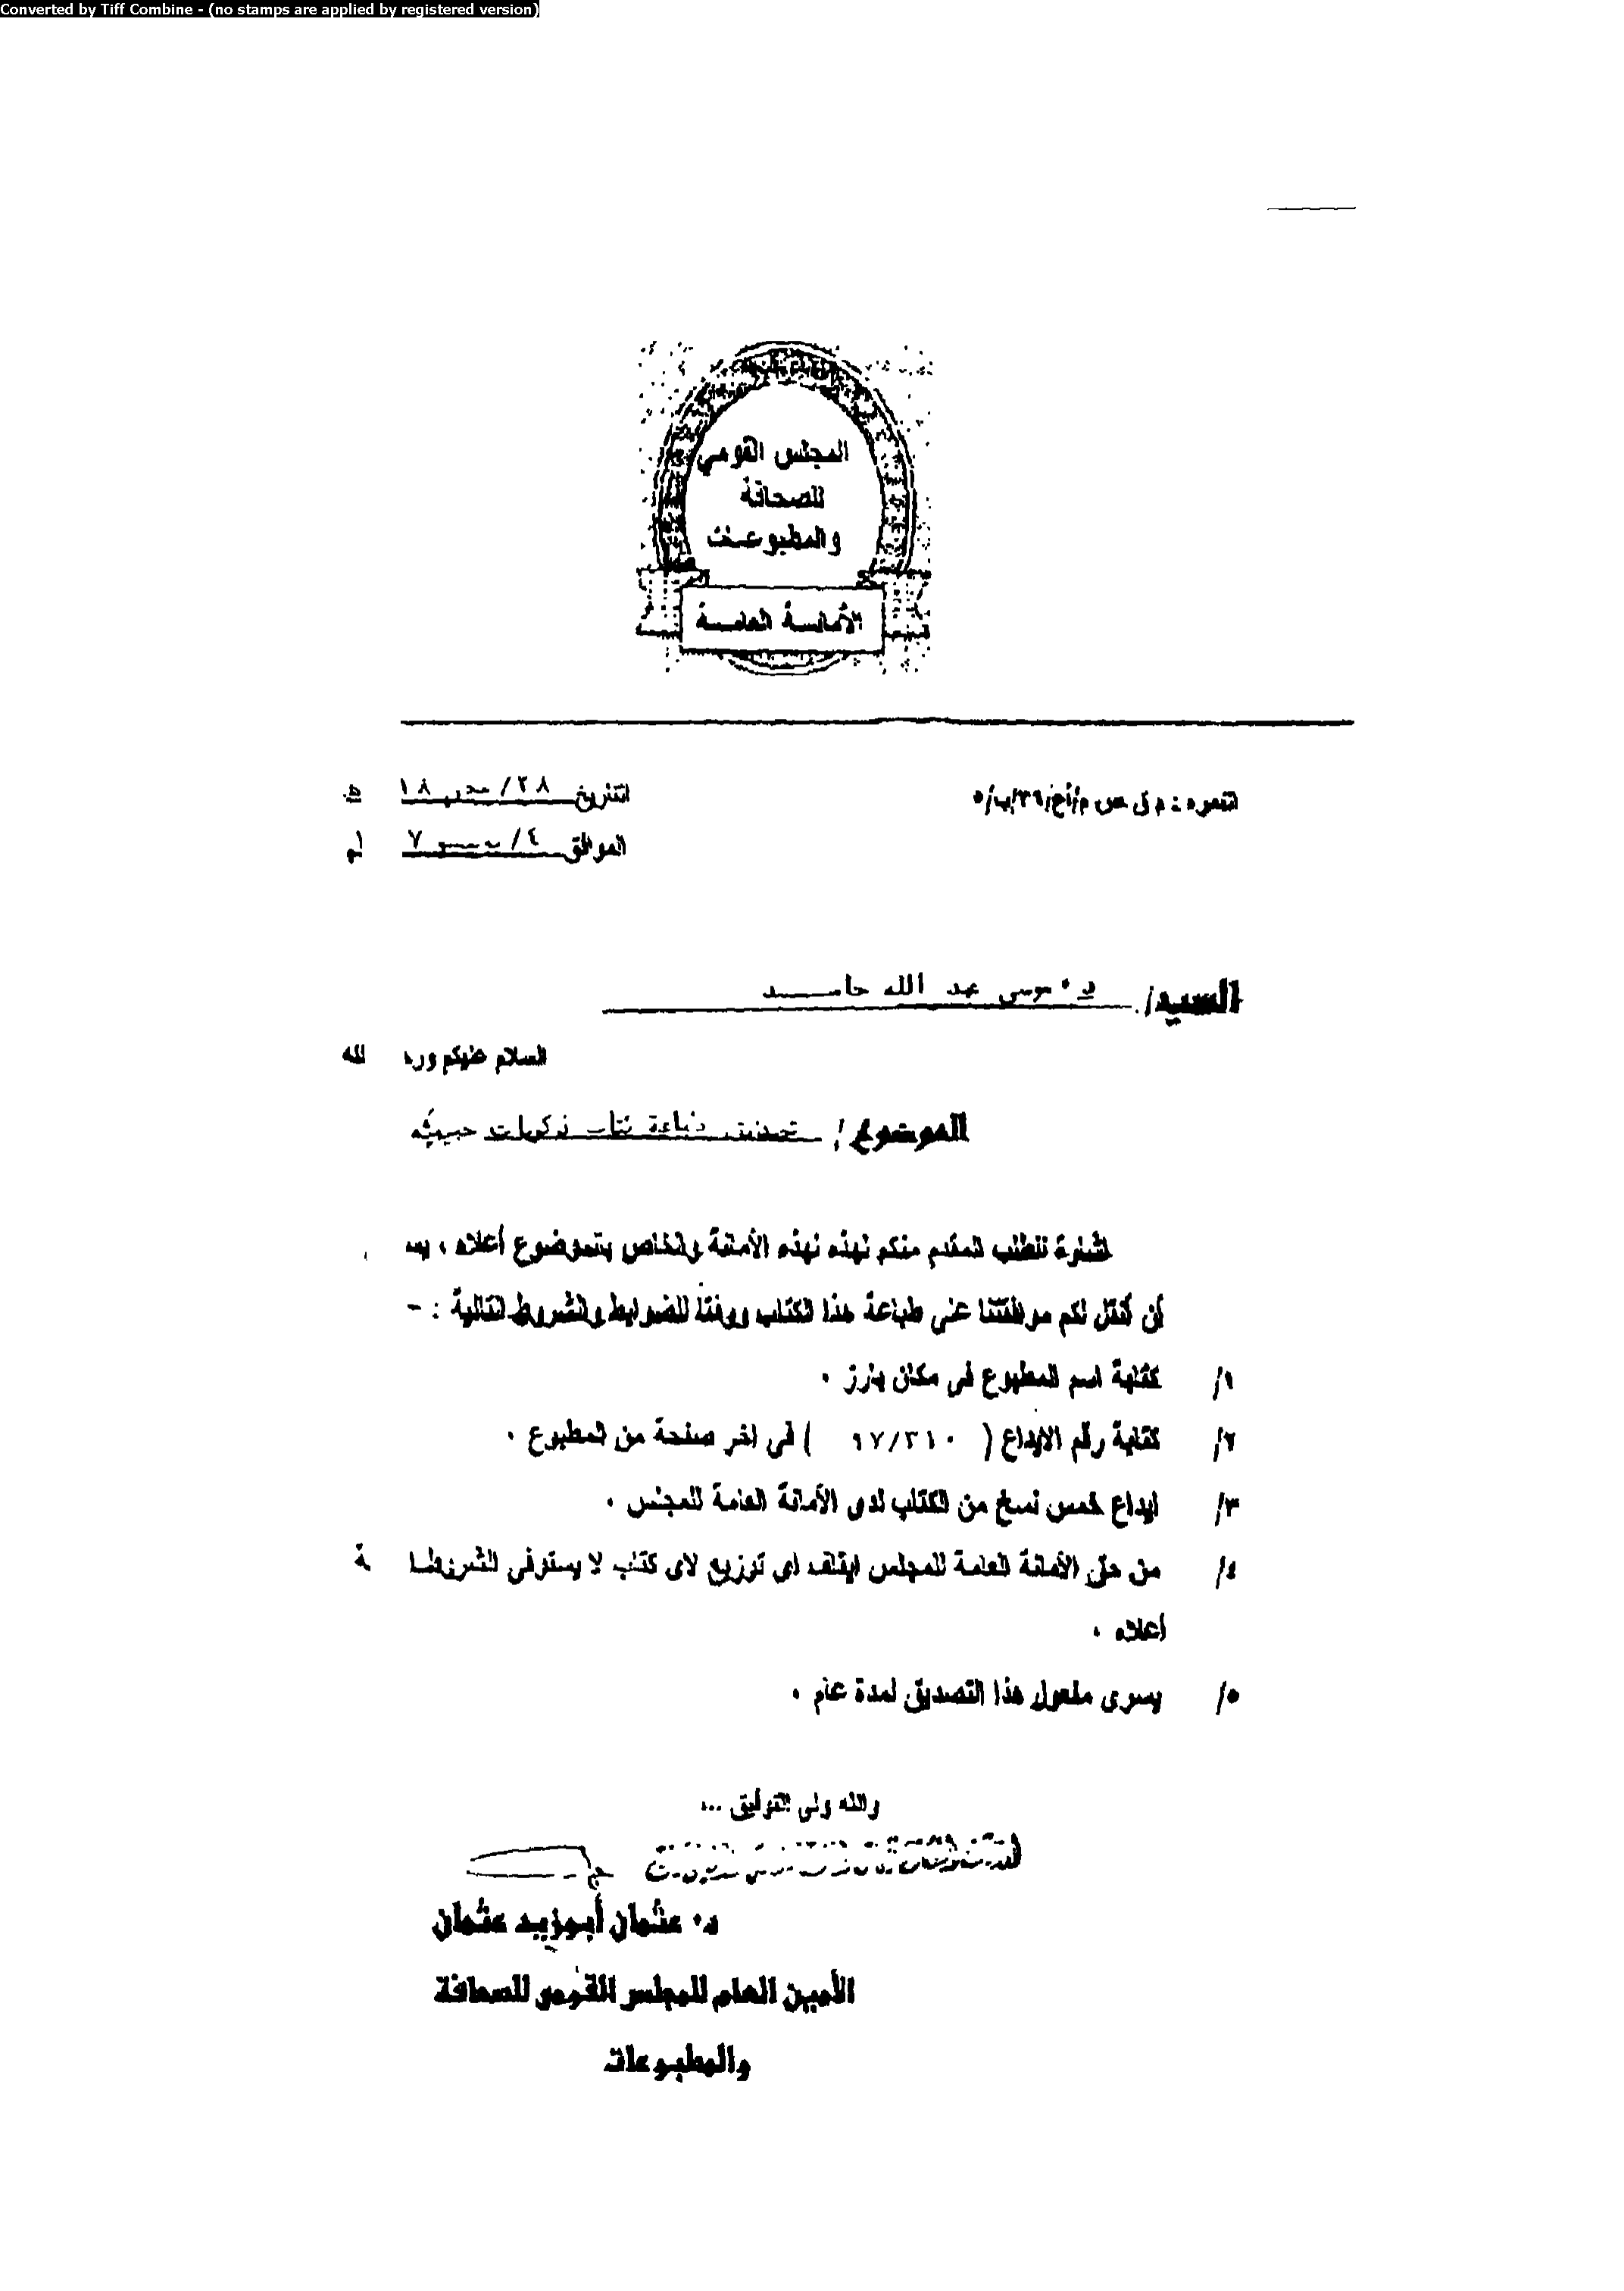 Converted by Tiff Combine - (no stamps are applied by registered version)
المجلس القومي
للصحافة
والمطبوعات
الأمانة العامة
النمره : م ق ص م/أع/٣٩/ب/٥
التاريخ ٢٨/ صفر ١٨ هـ
الموافق ٤/ ٧ م
السيد/ د. موسى عبد الله حامد
السلام عليكم الله
الموضوع / تصديق طباعة كتاب ذكريات حبيبة
اشارة للطلب المقدم منكم لهذه لهذه الأمانة والخاص بالموضوع أعلاه ،
أن أنقل لكم موافقتنا على طباعة هذا الكتاب ووفقا للضوابط والشروط التالية : -
١/ كتابة اسم المطبوع في مكان بارز .
٢/ كتابة رقم الايداع ( ٩٧/٢١٠ ) في اخر صفحة من المطبوع .
٣/ ايداع خمس نسخ من الكتاب لدى الأمانة العامة للمجلس .
٤/ من حق الأمانة العامة للمجلس ايقاف اى توزيع لاى كتاب لا يستوفى
أعلاه .
٥/ يسرى مفعول هذا التصديق لمدة عام .
والله ولى التوفيق ...
د. عثمان أبوزيد عثمان
الأمين العام للمجلس القومى للصحافة
والمطبوعات